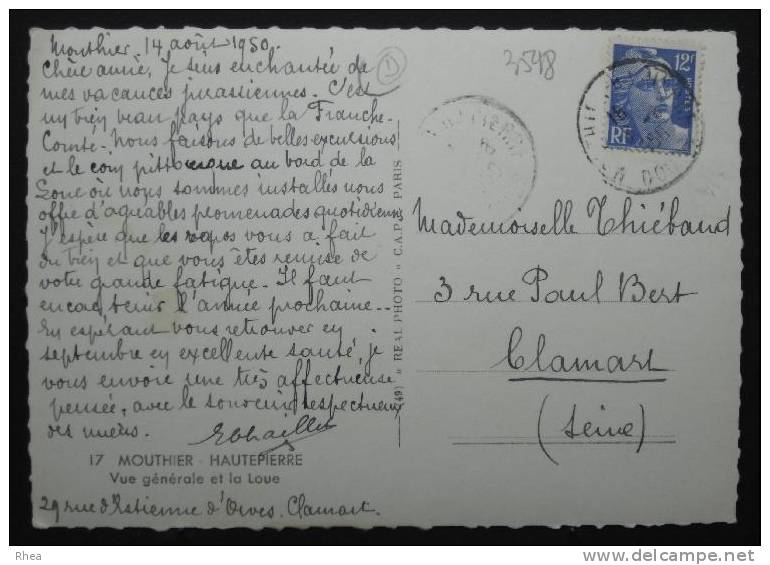 Mouthier. 14 août 1950.
Chère amie, je suis enchantée de
mes vacances jurassiennes. C'est
un bien beau pays que la Franche-
Comté. Nous faisons de belles excursions
et le coin pittoresque au bord de la
Loue où nous sommes installés nous
offre d'agréables promenades quotidiennes
J'espère que les repos vous a fait
du bien et que vous êtes remise de
votre grande fatigue. Il faut
encore tenir l'année prochaine..
En espérant vous retrouver en
septembre en excellente santé, je
vous envoie une très affectueuse
pensée, avec le souvenir respectueux
des miens.
17 MOUTHIER - HAUTEPIERRE
Vue générale et la Loue
29 rue d'Estienne d'Orves. Clamart.
(49) « REAL PHOTO » C.A.P. PARIS
1
3548
12F
POSTES
RF
Mademoiselle Thiébaud
3 rue Paul Bert
Clamart
(Seine)
Rhea
delcampe.net